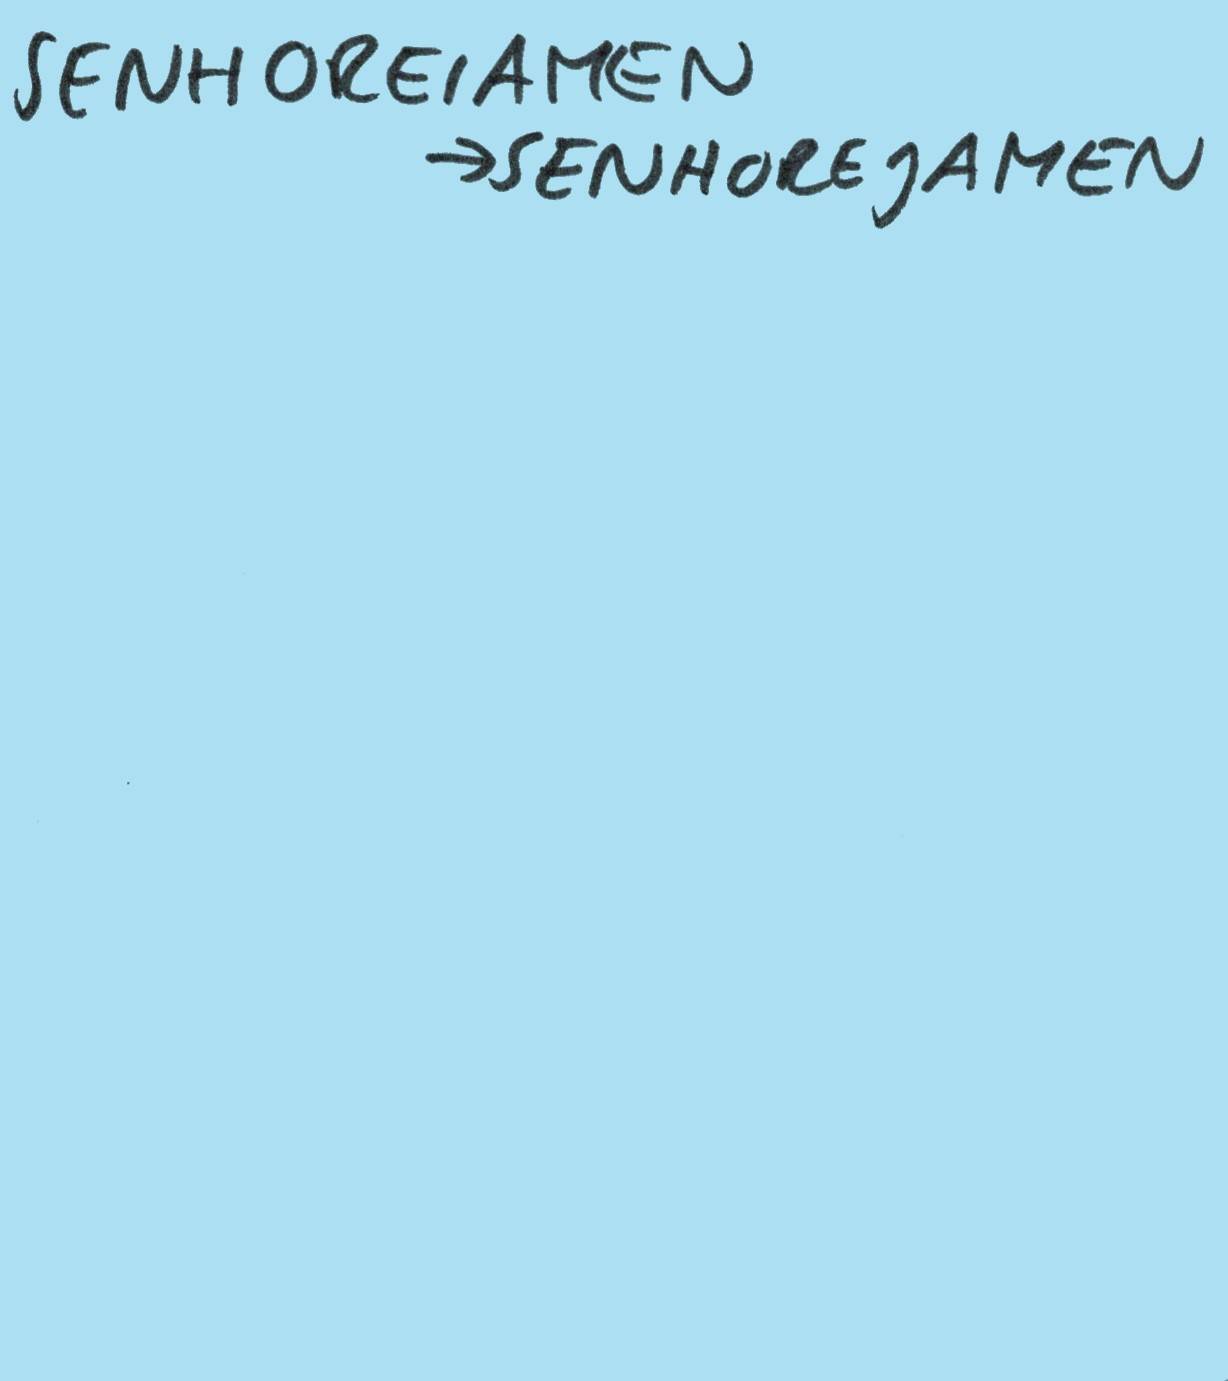 SENHOREIAMEN
→SENHOREJAMEN